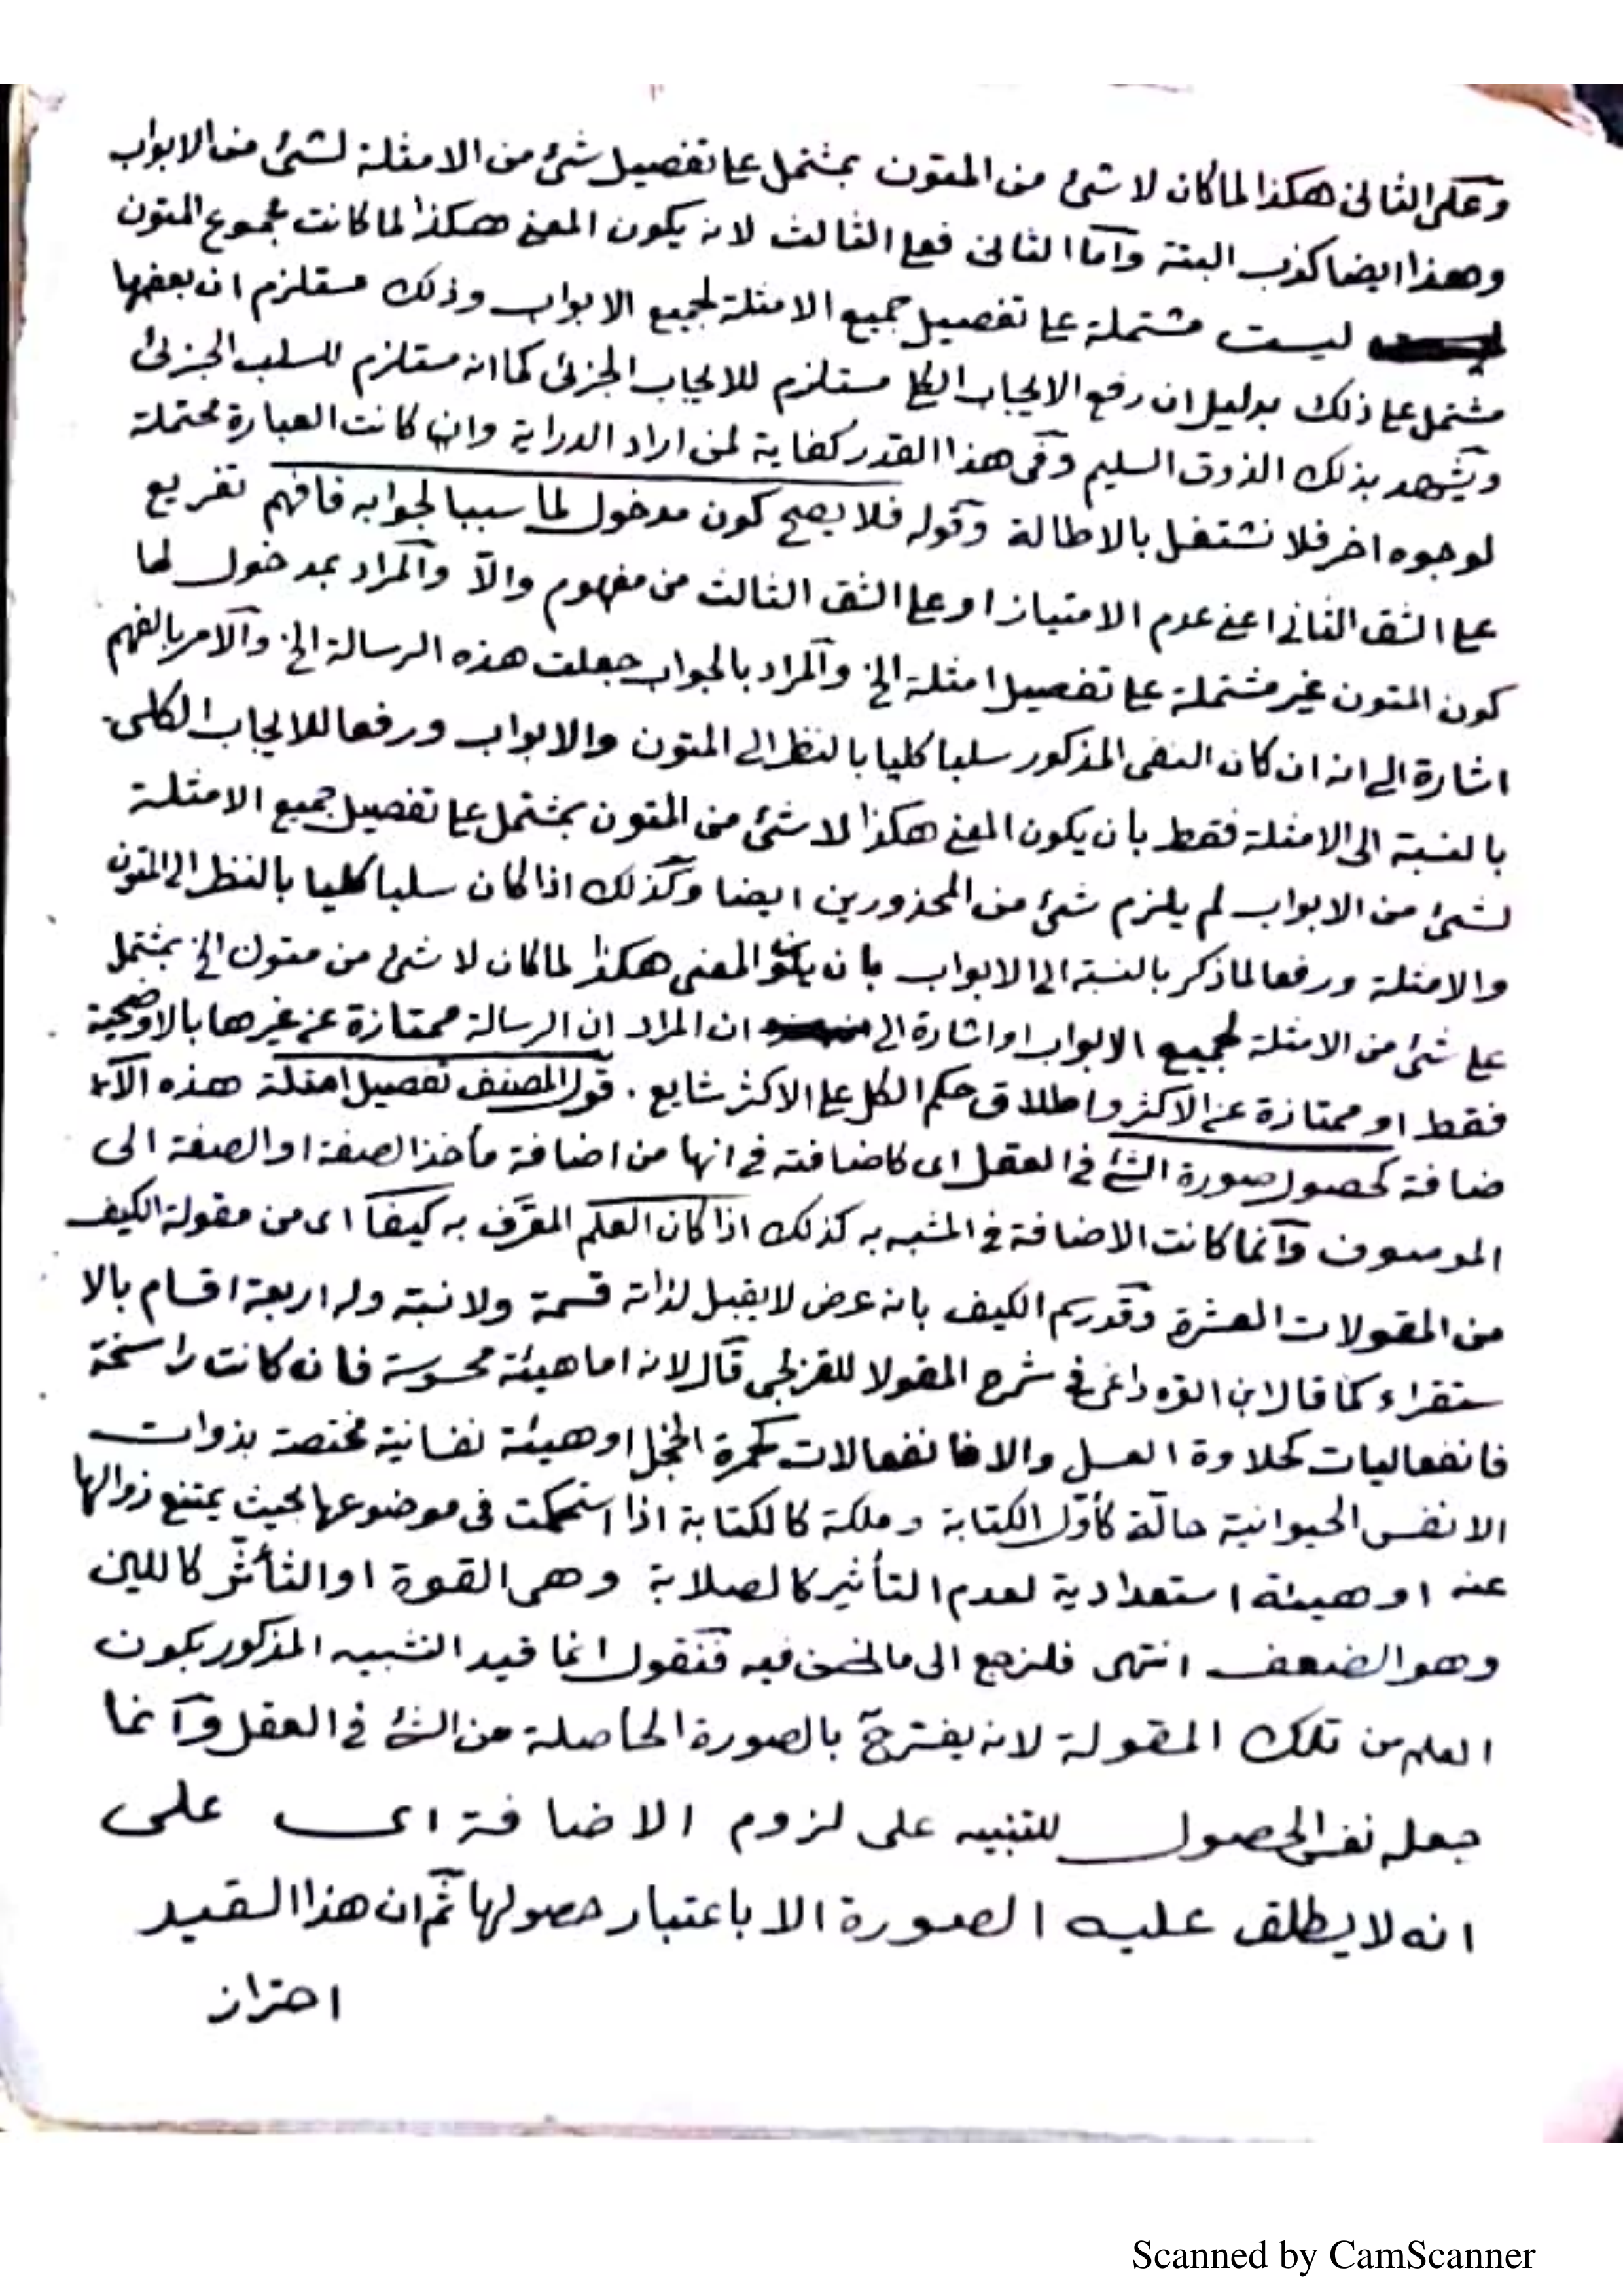 وعلى الثانى هكذا لما كان لا شئ من المتون بمشتمل على تفصيل شئ من الامثلة لشئ من الابواب
وهذا ايضا كذب البتة واما الثانى فعلى الثالث لانه يكون المعنى هكذا لما كانت مجموع المتون
ليست مشتملة على تفصيل جميع الامثلة لجميع الابواب وذلك مستلزم ان بعضها
مشتمل على ذلك بدليل ان رفع الايجاب الكلى مستلزم للايجاب الجزئى كما انه مستلزم للسلب الجزئى
ويشهد بذلك الذوق السليم وفى هذا القدر كفاية لمن اراد الدراية وان كانت العبارة محتملة
لوجوه اخر فلا نشتغل بالاطالة وقوله فلا يصح كون مدخول لما سببا لجوابه فافهم تفريع
على الشق الثانى اعنى عدم الامتياز او على الشق الثالث من مفهوم والاّ والمراد بمدخول لما
كون المتون غير مشتملة على تفصيل امثلة الخ والمراد بالجواب جعلت هذه الرسالة الخ والامر بالفهم
اشارة الى انه ان كان النفى المذكور سلبا كليا بالنظر الى المتون والابواب ورفعا للايجاب الكلى
بالنسبة الى الامثلة فقط بان يكون المعنى هكذا لا شئ من المتون بمشتمل على تفصيل جميع الامثلة
لشئ من الابواب لم يلزم شئ من المحذورين ايضا وكذلك اذا كان سلبا كليا بالنظر الى المتون
والامثلة ورفعا لما ذكر بالنسبة الى الابواب بان يكون المعنى هكذا لما كان لا شئ من متون الخ بمشتمل
على شئ من الامثلة لجميع الابواب او اشارة الى ان المراد ان الرسالة ممتازة عن غيرها بالاوضحية
فقط او ممتازة عن الاكثر واطلاق حكم الكل على الاكثر شايع . قول المصنف تفصيل امثلة هذه الا
ضافة كحصول صورة الشئ فى العقل اى كاضافته فى انها من اضافة مأخذ الصفة او الصفة الى
الموصوف وانما كانت الاضافة فى المشبه به كذلك اذا كان العلم المعرَّف به كيفا اى من مقولة الكيف
من المقولات العشرة وقد رسم الكيف بانه عرض لا يقبل لذاته قسمة ولا نسبة وله اربعة اقسام بالا
ستقراء كما قال ابن القره داغى فى شرح المقولا للقزلجى قال لانه اما هيئة محسوسة فان كانت راسخة
فانفعاليات كحلاوة العسل والا فانفعالات كحمرة الخجل او هيئة نفسانية مختصة بذوات
الانفس الحيوانية حالّة كأوّل الكتابة وملكة كالكتابة اذا استحكمت فى موضوعها بحيث يمتنع زوالها
عنه او هيئة استعدادية لعدم التأثير كالصلابة وهى القوة او التأثّر كاللين
وهو الضعف انتهى فلنرجع الى ما نحن فيه فنقول انما قيد التشبيه المذكور بكون
العلم من تلك المقولة لانه بالصورة الحاصلة من الشئ فى العقل وانما
جعله نفس الحصول للتنبيه على لزوم الاضافة اى على
انه لا يطلق عليه الصورة الا باعتبار حصولها ثم ان هذا القيد
احتراز
Scanned by CamScanner